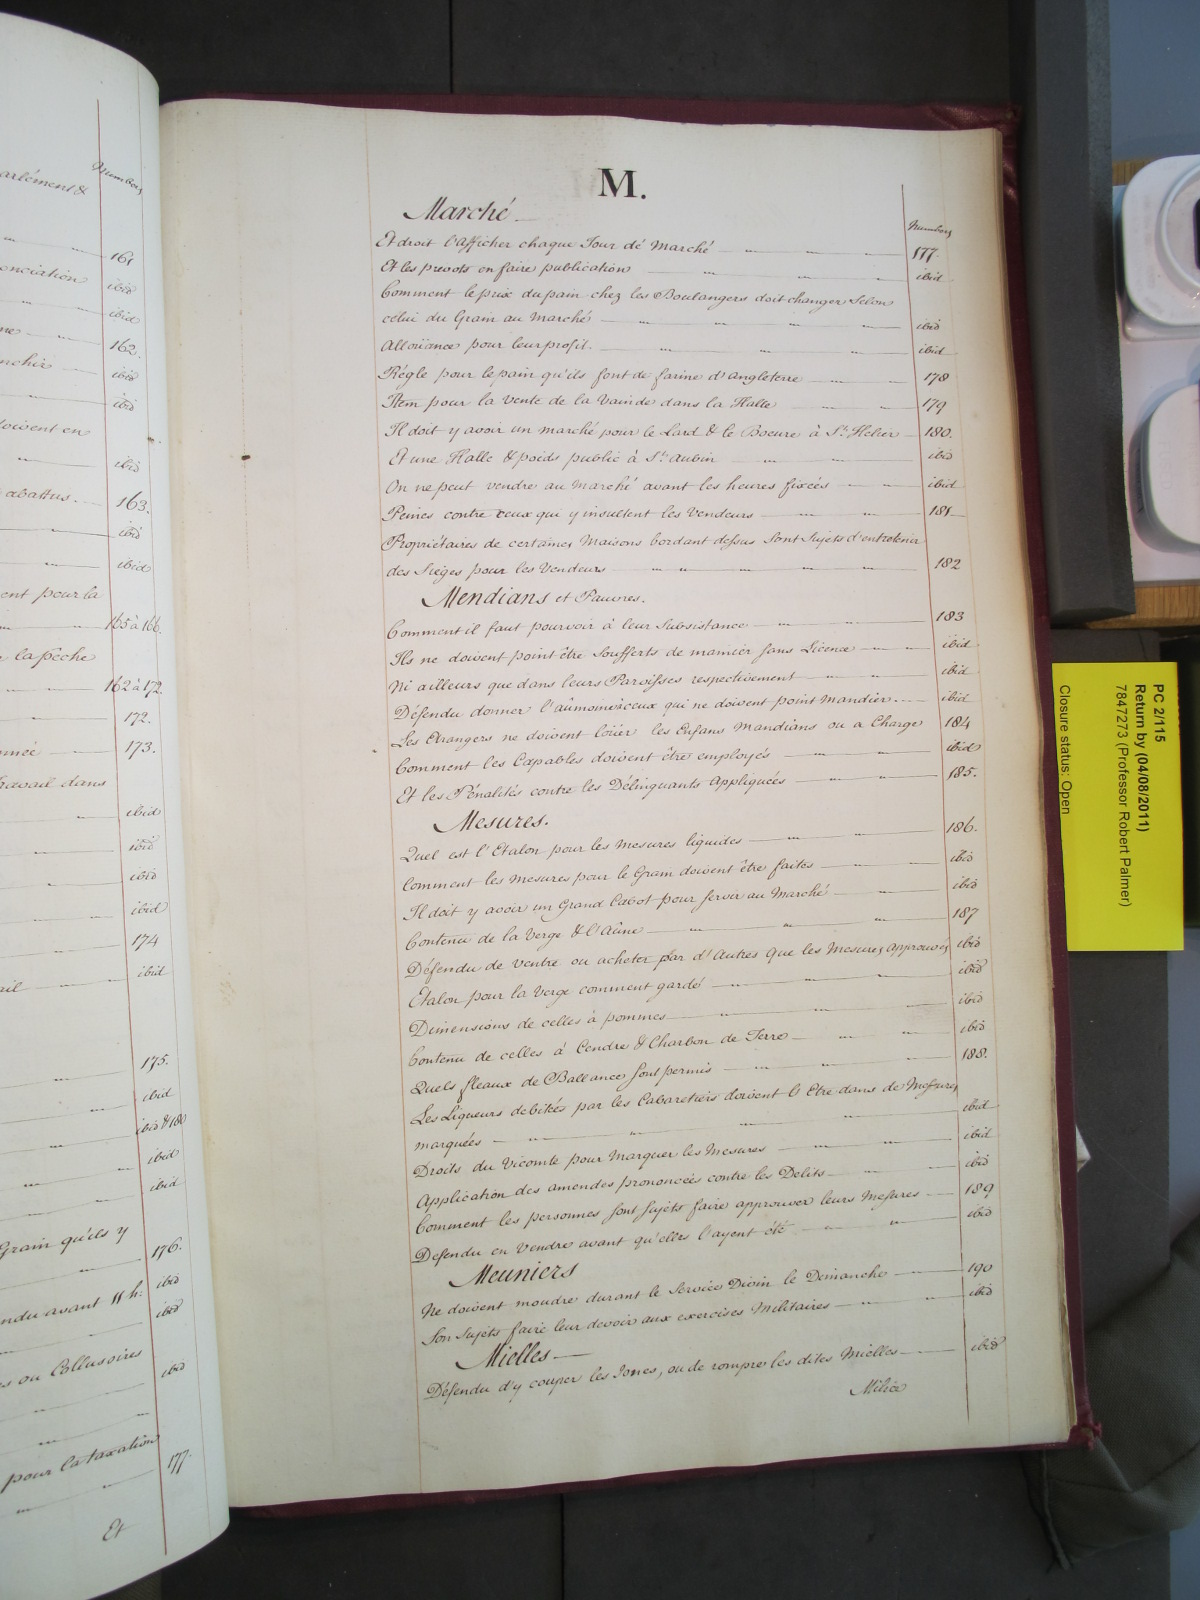 Numbers
arlément &
161
onciation
ibid
ibid
ne
162.
nchir
ibid
ibid
doivent en
ibid
abattus.
163.
ibid
ibid
ent pour la
165 à 166.
la pêche
162 à 172.
172.
173.
ravail dans
ibid
ibid
ibid
ibid
174
ail
ibid
175.
ibid
ibid & 180
ibid
ibid
Grain qu'ils y
176.
ndu avant 11 h:
ibid
ibid
s ou Collusoires
ibid
pour la taxation
177.
Et
M.
Marché
Numbers
Et droit l'afficher chaque Jour de Marché 177.
Et les prevots en faire publication ibid
Comment le prix du pain chez les Boulangers doit changer Selon
celui du Grain au Marché ibid
Alloüance pour leur profit. ibid
Régle pour le pain qu'ils font de farine d'angleterre 178
Item pour la vente de la Vainde dans la Halle 179
Il doit y avoir un marché pour le Lard & le Boeure à St. Helier 180.
Et une Halle & poids public à St. aubin ibid
On ne peut vendre au Marché avant les heures fixées ibid
Peines contre ceux qui y insultent les Vendeurs 181
Propriétaires de certaines Maisons bordant dessus Sont Sujets d'entretenir
des Sieges pour les Vendeurs 182
Mendians et Pauvres.
Comment il faut pourvoir à leur Subsistance 183
Ils ne doivent point être Soufferts de manier sans Licence ibid
Ni ailleurs que dans leurs Paroisses respectivement ibid
Défendu donner l'aumone à ceux qui ne doivent point Mandier ibid
Les Etrangers ne doivent loüer les Enfans Mandians ou a Charge 184
Comment les Capables doivent être employés ibid
Et les Pénalités contre les Délinquants Appliquées 185.
Mesures.
Quel est l'Etalon pour les mesures liquides 186.
Comment les mesures pour le Grain doivent être faites ibid
Il doit y avoir un Grand Cabot pour servir au Marché ibid
Contenu de la Verge & l'Aûne 187
Défendu de ventre ou acheter par d'Autres que les Mesures approuvés ibid
Etalon pour la Verge comment gardé ibid
Dimensions de celles à pommes ibid
Contenu de celles à Cendre & Charbon de Terre ibid
Quels fleaux de Ballance sont permis 188.
Les Liqueurs debitées par les Cabaretiers doivent l' Etre dans de Mesures
marquées ibid
Droits du Vicomte pour Marquer les Mesures ibid
Application des amendes prononcées contre les Délits ibid
Comment les personnes sont sujets faire approuver leurs Mesures 189
Defendu en Vendre avant qu'elles l'ayent été ibid
Meuniers
Ne doivent moudre durant le Service Divin le Dimanche 190
Son sujets faire leur devoir aux exercises Militaires ibid
Mielles
Défendu d'y couper les Joncs, ou de rompre les dites Mielles ibid
Milice
PC 2/115
Return by (04/08/2011)
7847273 (Professor Robert Palmer)
Closure status: Open